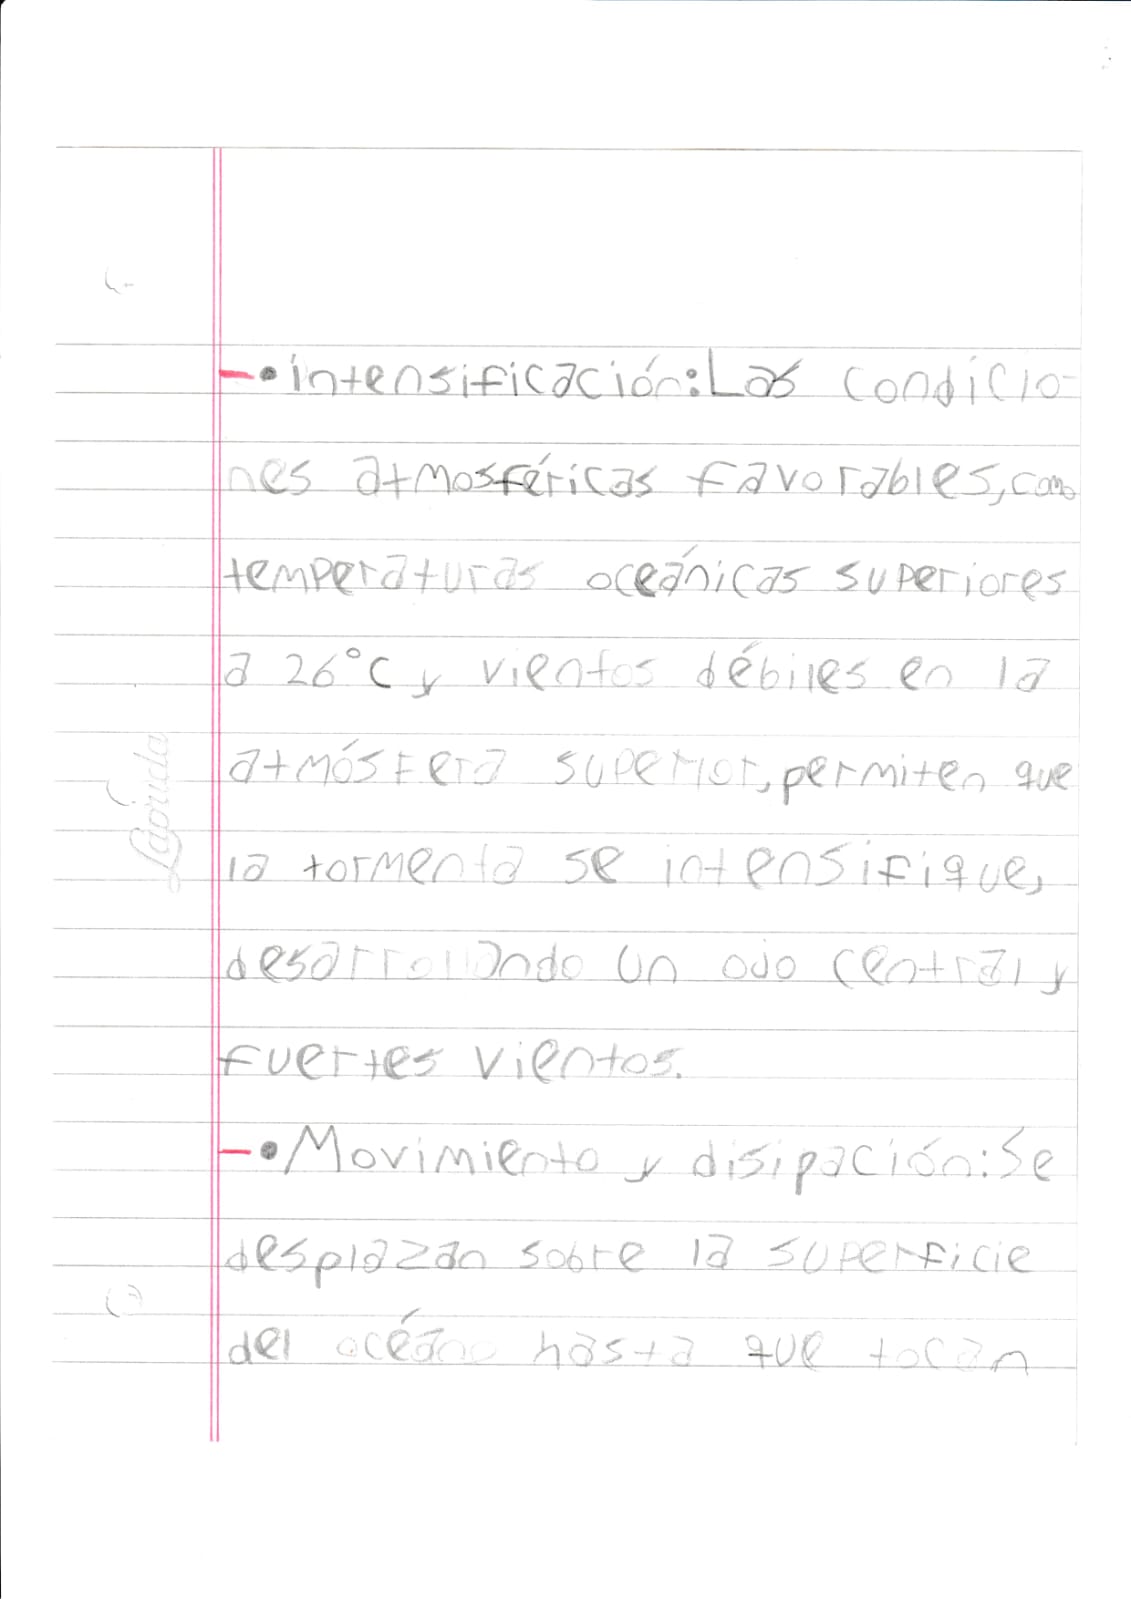 - • intensificación: Las condicio-
nes atmosféricas favorables, como
temperaturas oceánicas superiores
a 26°C y vientos débiles en la
atmósfera superior, permiten que
la tormenta se intensifique,
desarrollando un ojo central y
fuertes vientos.
- • Movimiento y disipación: Se
desplazan sobre la superficie
del océano hasta que tocan
Laprida